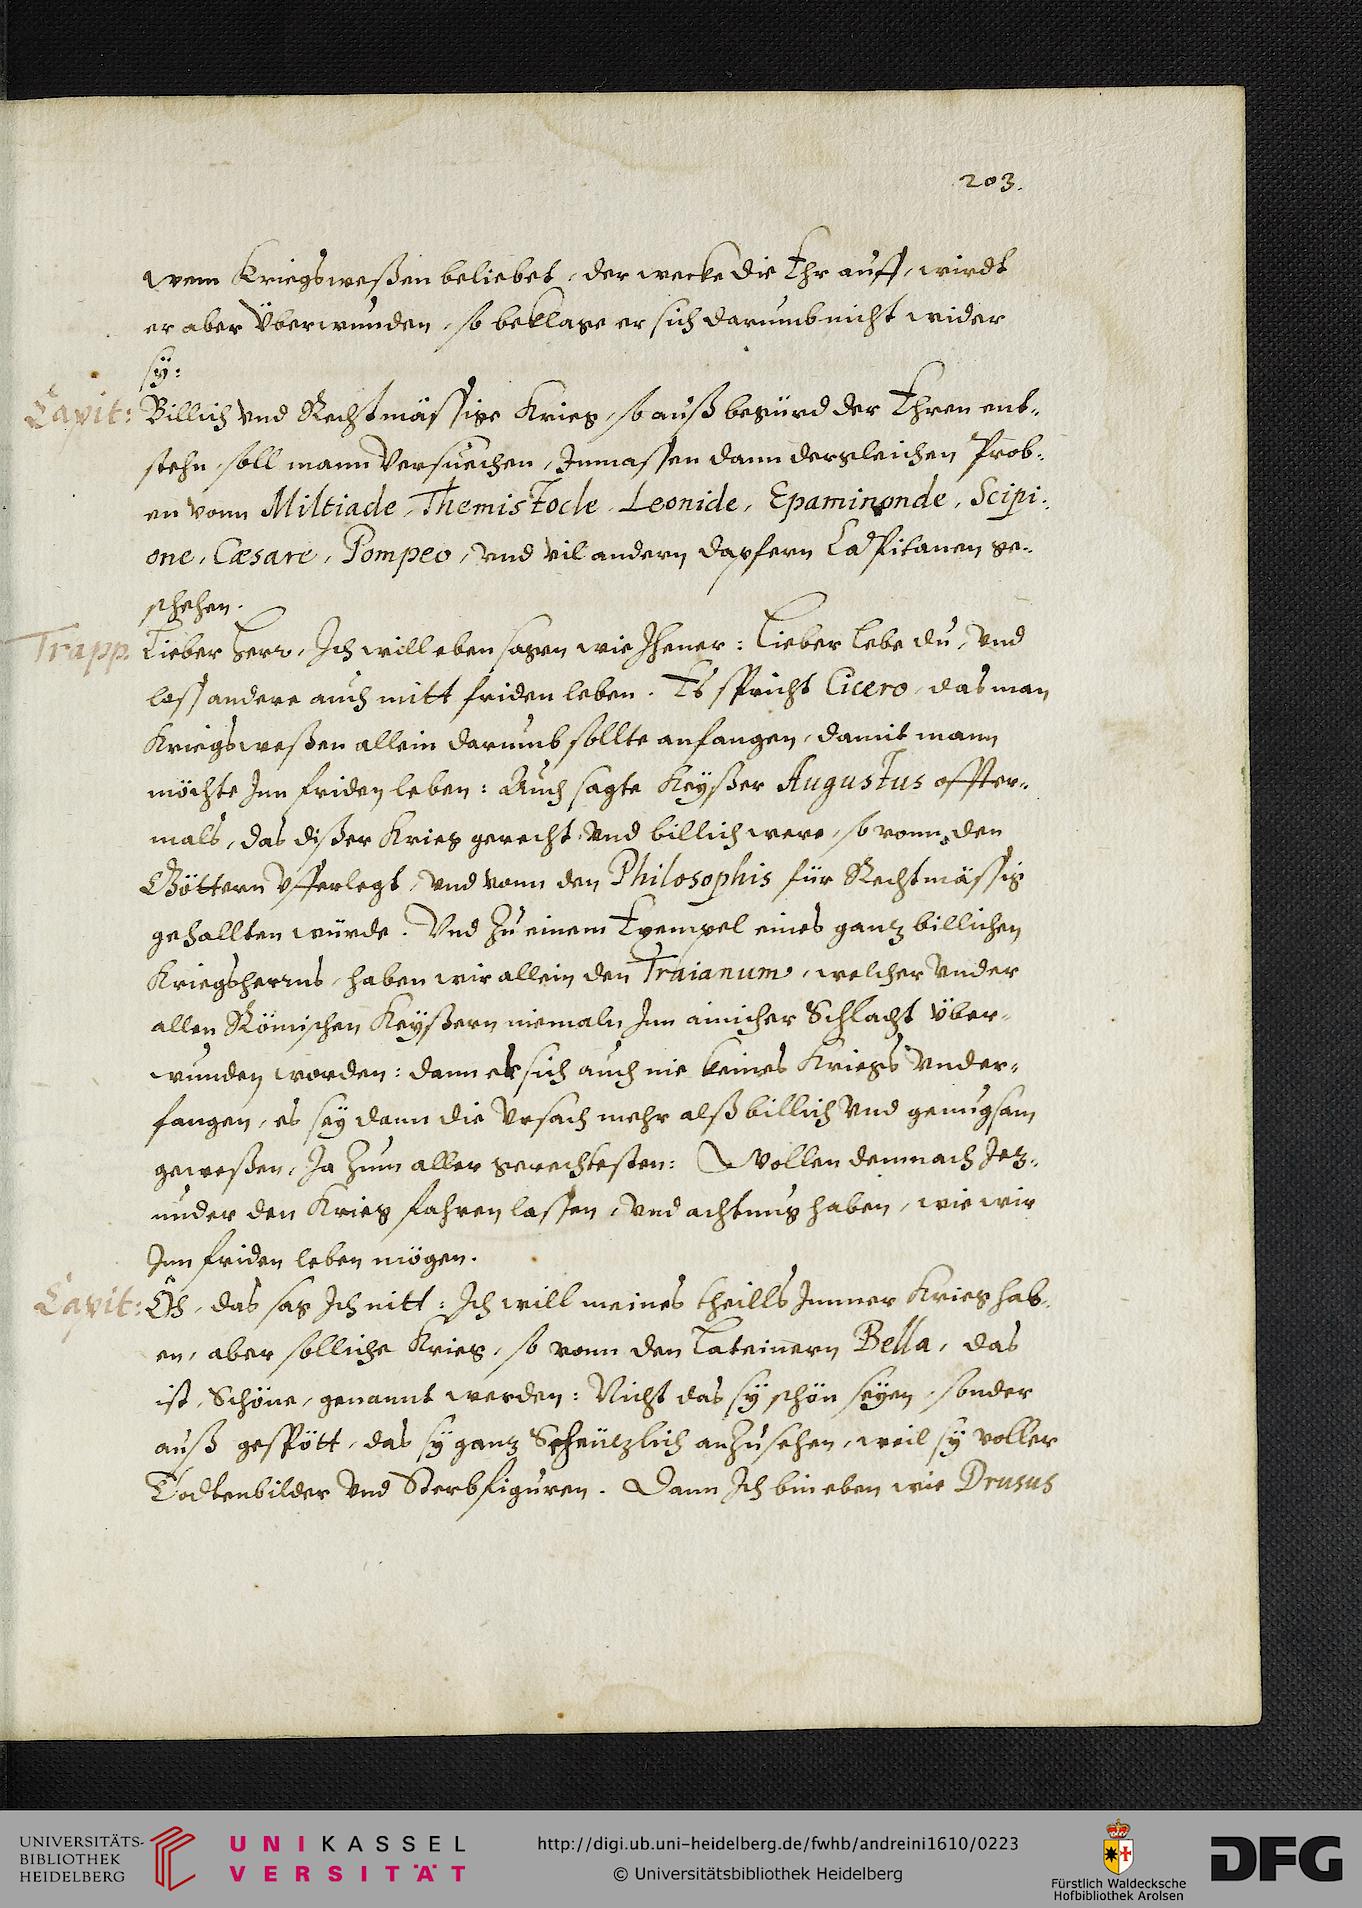 203.
wem Kriegsweßen beliebet, der wecke die Ehr auff, wirdt
er aber Überwunden, so beklage er sich darumb nicht wider
sÿ:
Capit: Billich Vnd Rechtmässige Krieg, so auß begürd der Ehren ent-
stehn, soll mann Versuechen, Inmassen dann dergleichen Prob-
en vonn Miltiade, Themistocle, Leonide, Epaminonde, Scipi-
one, Cæsare, Pompeo, vnd vil andern dapfern Capitanen ge-
schehen.
Trapp. Lieber Herr, Ich will eben sagen wie Jhener: Lieber lebe du, Vnd
loss andere auch mitt friden leben. Es spricht Cicero, das man
Kriegsweßen allein darumb sollte anfangen, damit mann
möchte Inn friden leben: Auch sagte Keyßer Augustus offter-
mals, das dißer Krieg gerecht Vnd billich were, so vonn den
Göttern Vfferlegt, vnd vonn den Philosophis für Rechtmässig
gehallten würde. Vnd Zu einem Exempel eines gantz billichen
Kriegsherrns, haben wir allein den Traianum, welcher Vnder
allen Römischen Keyßern niemaln Inn ainicher Schlacht Über-
wunden worden: dann er sich auch nie keines Kriegs Vnder-
fangen, es seÿ dann die Vrsach mehr alß billich Vnd genugsam
geweßen, Ja Zum aller gerechtesten: Wollen demnach Jetz-
under den Krieg fahren lassen, Vnd achtung haben, wie wir
Inn friden leben mögen.
Capit: Oh, das sag Ich nitt: Ich will meines theills Immer Krieg hab-
en, aber solliche Krieg, so vonn den Lateinern Bella, das
ist, Schöne, genannt werden: Nicht das sÿ schön seÿen, sonder
auß gespött, das sÿ gantz Scheützlich anZusehen, weil sÿ voller
Todtenbilder Vnd Sterbfiguren. Dann Ich bin eben wie Drusus
UNIVERSITÄTS-
BIBLIOTHEK
HEIDELBERG
UNIKASSEL
VERSITÄT
http://digi.ub.uni-heidelberg.de/fwhb/andreini1610/0223
© Universitätsbibliothek Heidelberg
Fürstlich Waldecksche
Hofbibliothek Arolsen
DFG